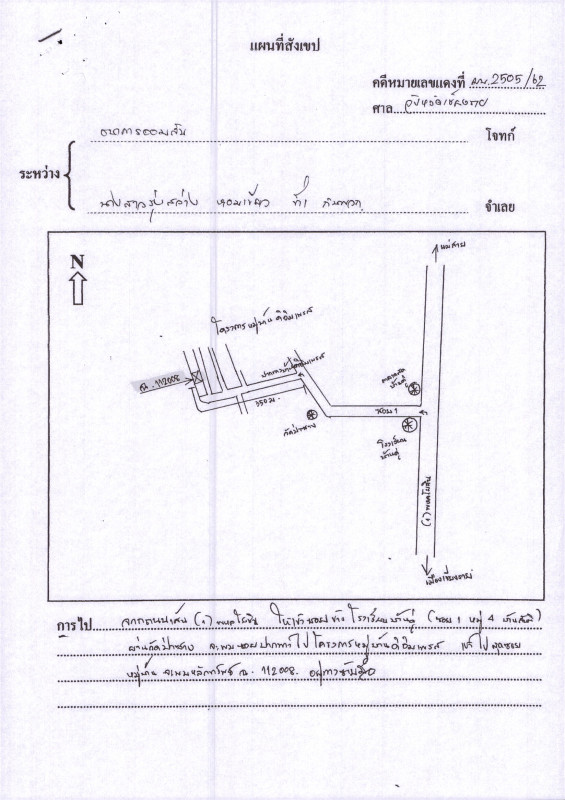 แผนที่สังเขป
คดีหมายเลขแดงที่ ผบ. 2505/62
ศาล จังหวัดเชียงราย
ธนาคารออมสิน โจทก์
ระหว่าง
นางสาวรุ่งสว่าง หอมเขียว ที่1 กับพวก จำเลย
N
แม่สาย
โครงการหมู่บ้านดิอิมเพรส
ณ. 112008
350 ม.
วัดป่าซาง
ซอย 1
โรงเรียนบ้านดู่
(1) พหลโยธิน
เมืองเชียงราย
การไป จากถนนเส้น (1) พหลโยธิน ให้เข้าซอยข้างโรงเรียนบ้านดู่ (ซอย 1 หมู่ 4
ผ่านวัดป่าซาง จะพบซอยปากทางไปโครงการหมู่บ้านดิอิมเพรส เข้าไปสุดซอย
หมู่บ้าน จะพบหลักหมุด ณ. 112008. อยู่ทางซ้ายมือ